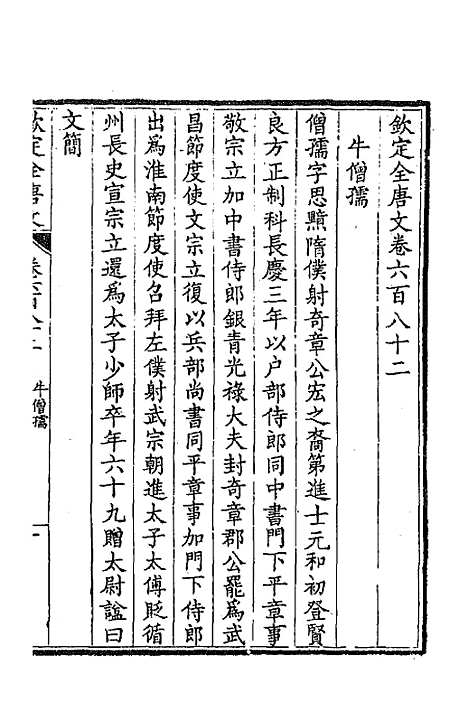 欽定全唐文卷六百八十二
牛僧孺
僧孺字思黯隋僕射奇章公宏之裔第進士元和初登賢
良方正制科長慶三年以户部侍郎同中書門下平章事
敬宗立加中書侍郎銀青光祿大夫封奇章郡公罷爲武
昌節度使文宗立復以兵部尚書同平章事加門下侍郎
出爲淮南節度使召拜左僕射武宗朝進太子太傅貶循
州長史宣宗立還爲太子少師卒年六十九贈太尉諡曰
文簡
欽定全唐文
卷六百八十二
牛僧孺
一